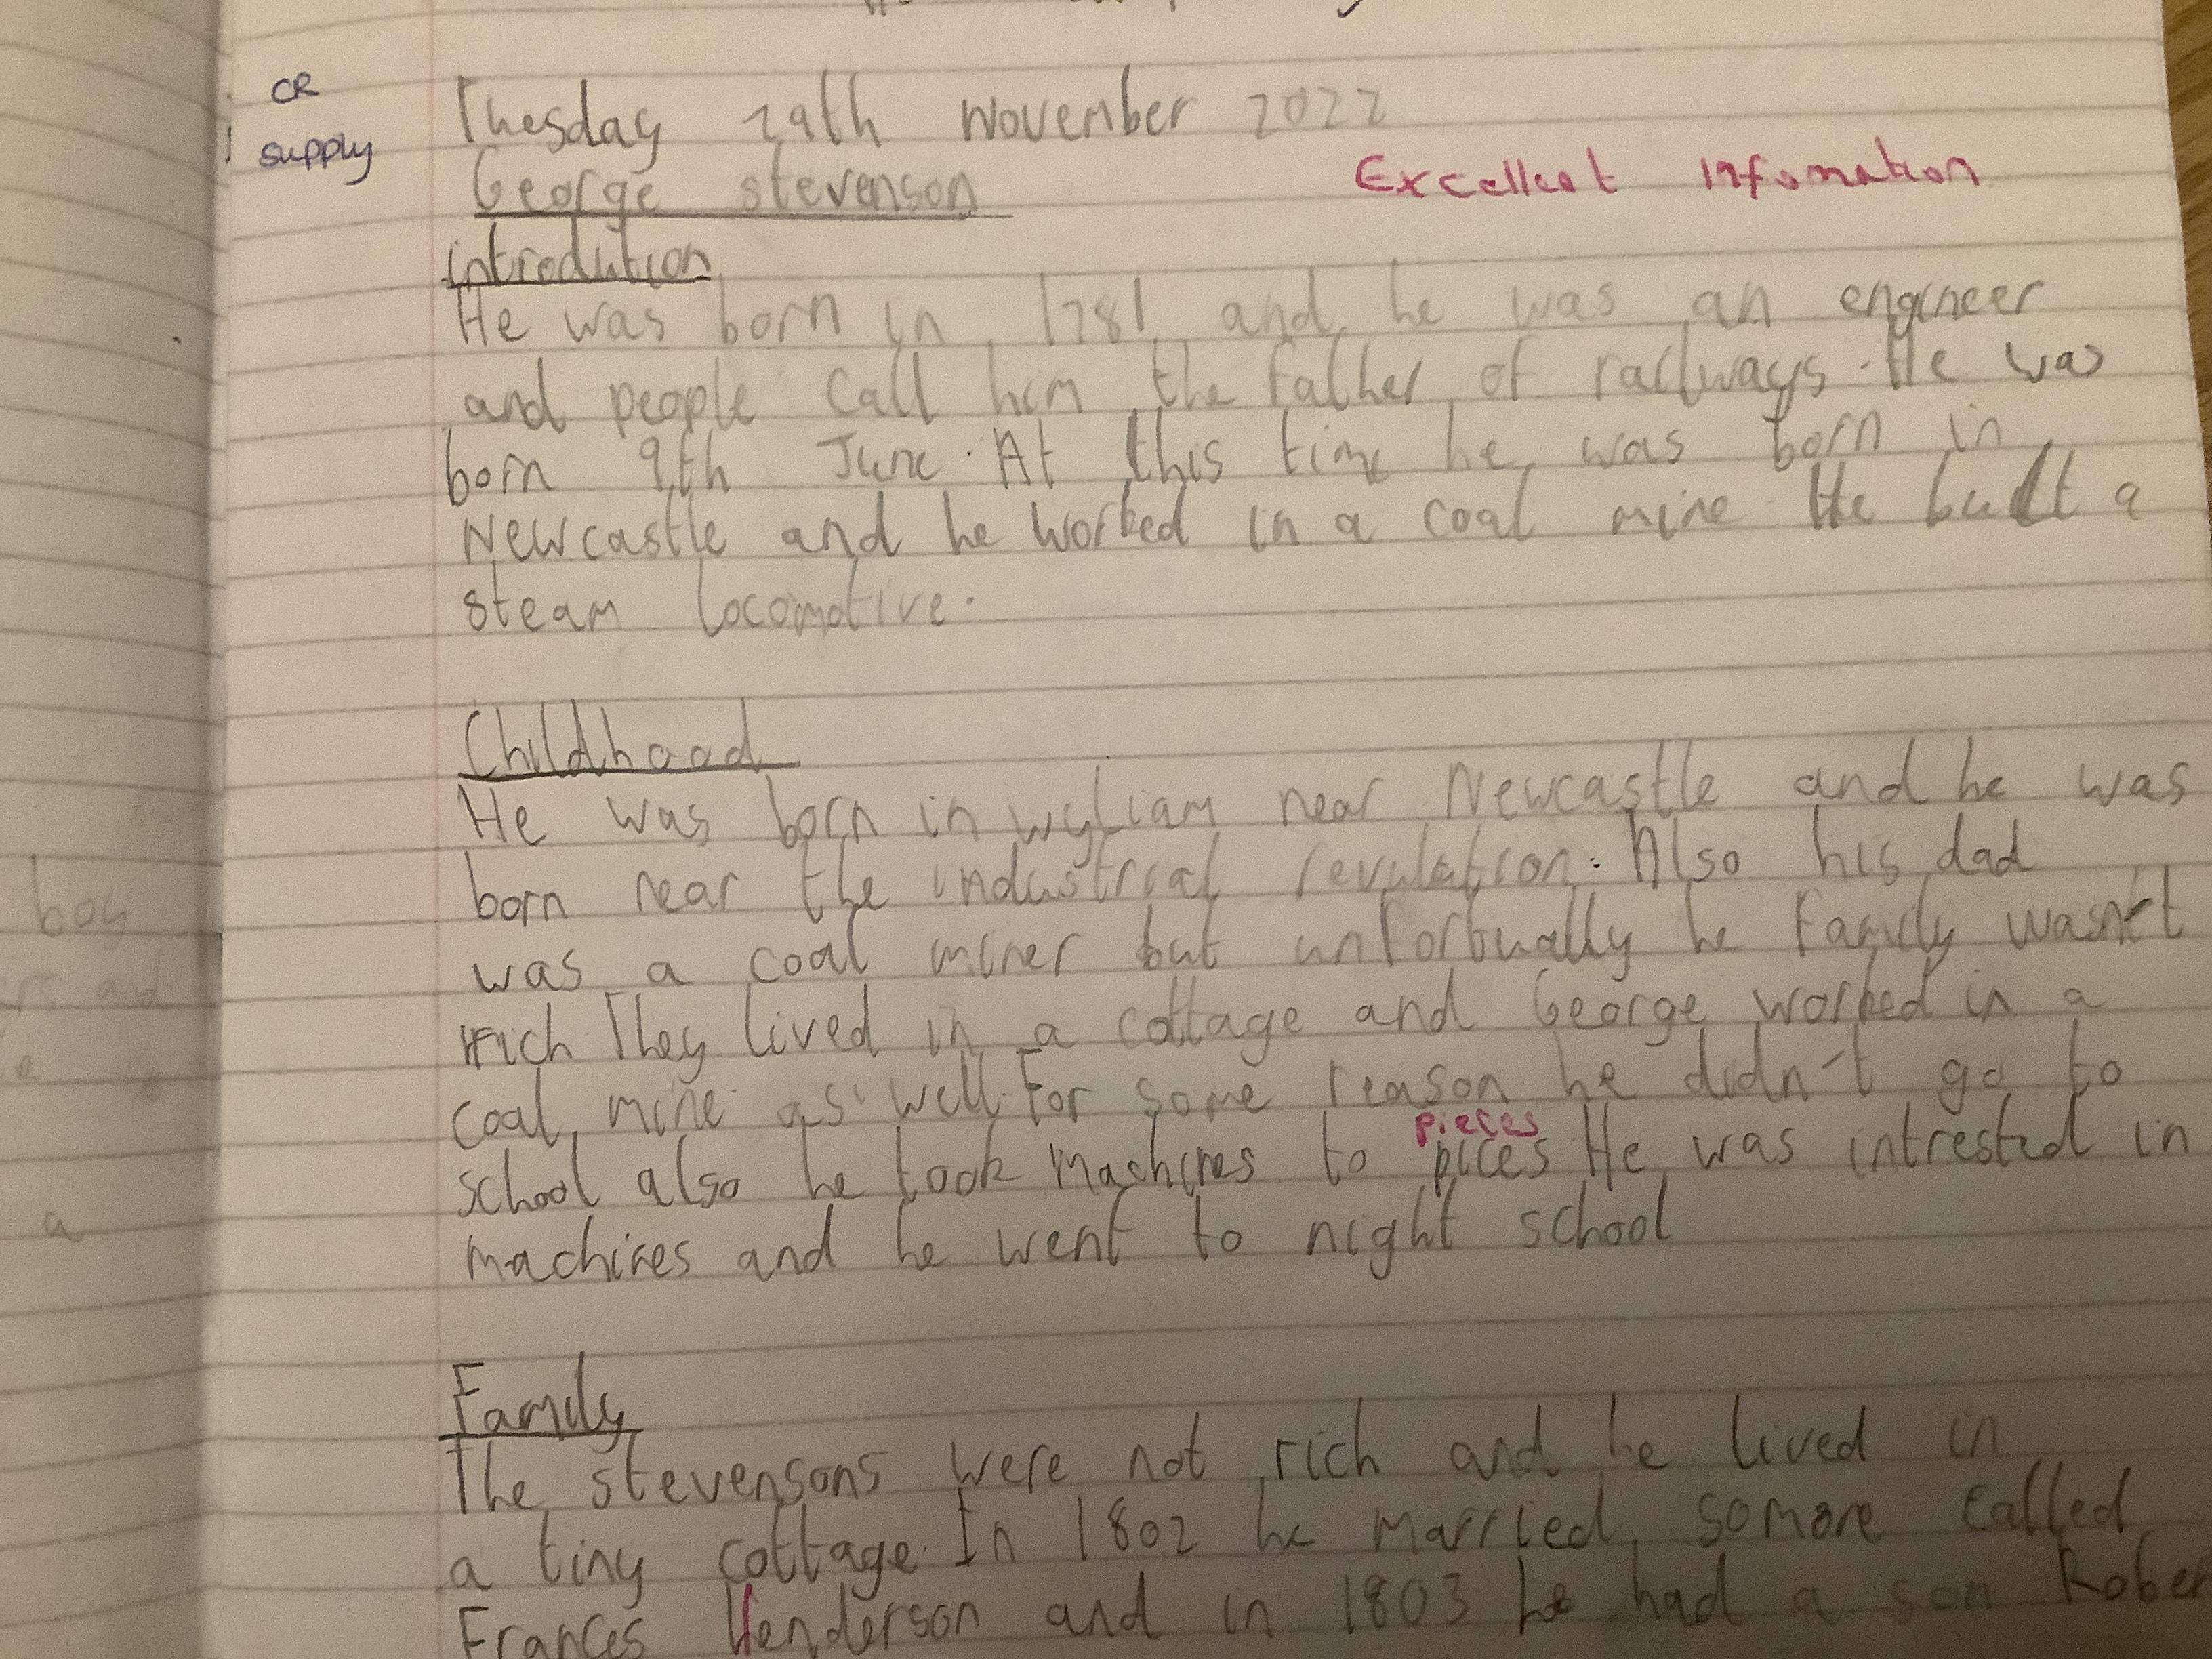 CR
supply
Tuesday 29th November 2022
George stevenson
Excellent Infomation
introdution
He was born in 1781 and he was an engineer
and people call him the father of railways. He was
born 9th June. At this time he was born in
Newcastle and he worked in a coal mine. He built a
steam locomotive.
Childhood
He was born in wyliam near Newcastle and he was
born near the industrial revulation. Also his dad
was a coal miner but unfortually he family wasn't
rich They lived in a cottage and George worked in a
coal mine as well. For some reason he didn't go to
pieces
school also he took machines to pices He was intrested in
machines and he went to night school
Family
The stevensons were not rich and he lived in
a tiny cottage. In 1802 he married somone called
Frances Henderson and in 1803 he had a son Rober
boy
and
a